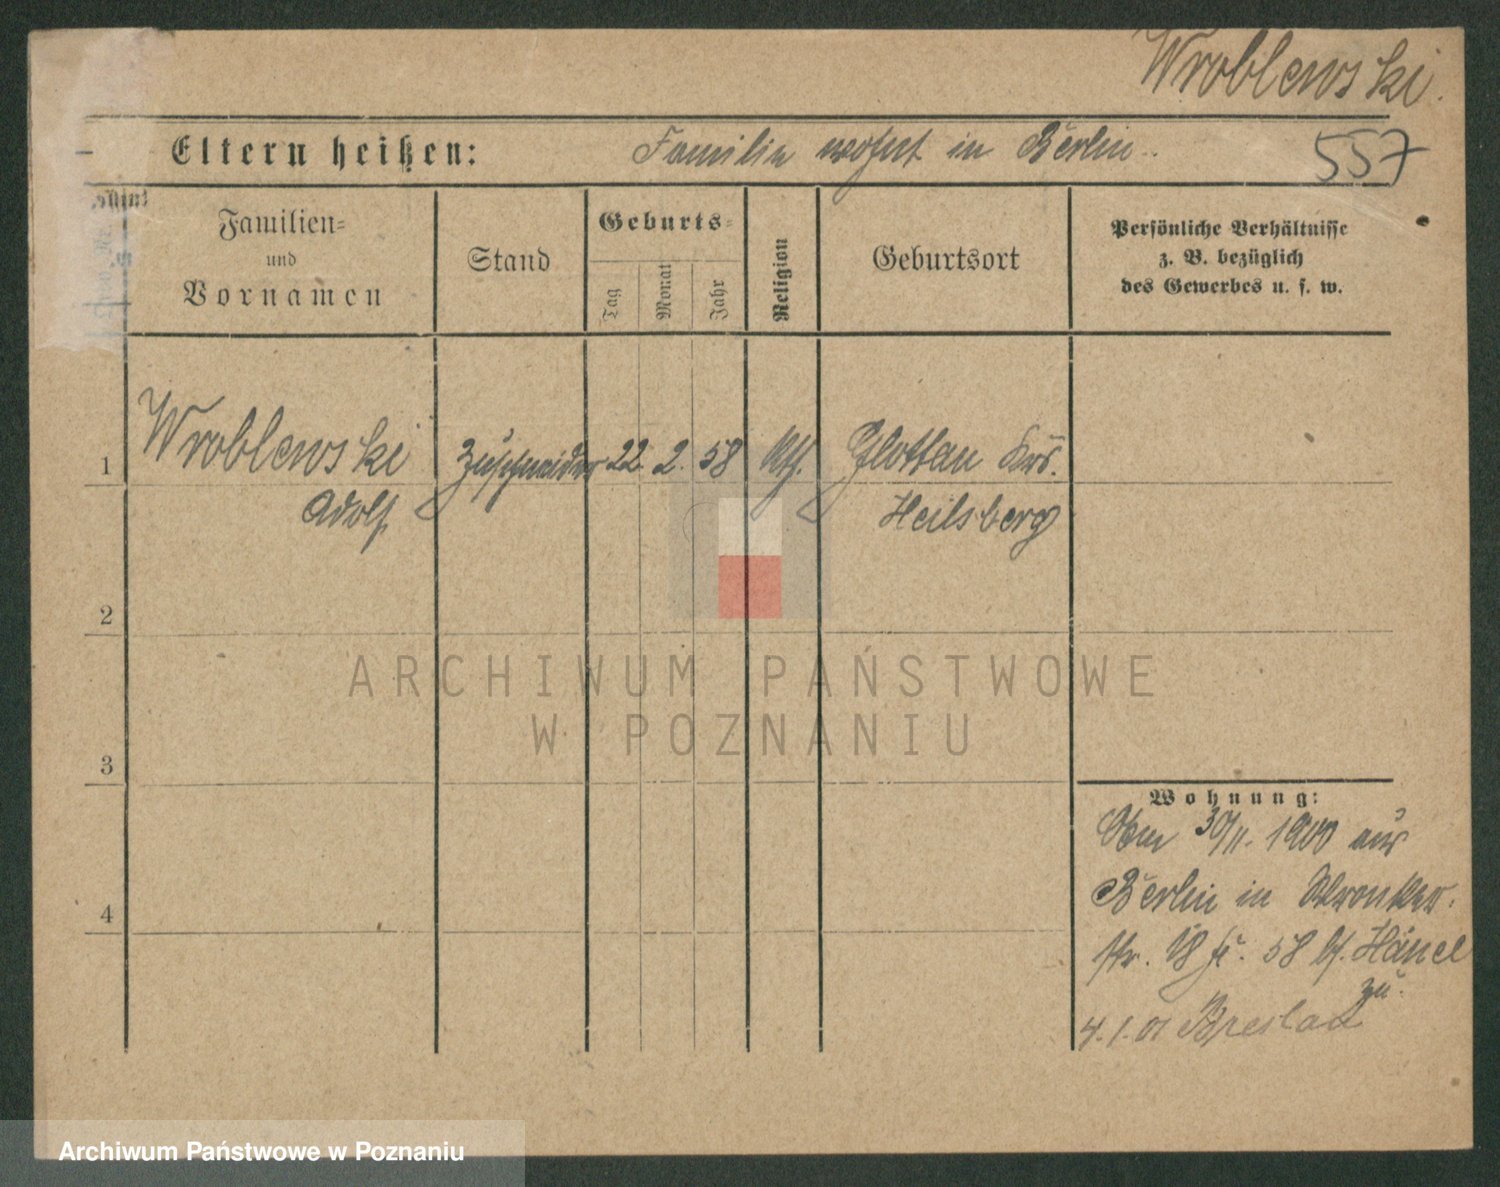 Wroblewski.
Eltern heißen: Familie wohnt in Berlin.
557
Familien=
und
Vornamen
Stand
Geburts=
Tag
Monat
Jahr
Religion
Geburtsort
Persönliche Verhältnisse
z. B. bezüglich
des Gewerbes u. s. w.
1 Wroblewski Zuschneider 22. 2. 58 kth. Glottau Krs.
Adolf Heilsberg
2
3
4
Wohnung:
Am 30/11. 1900 aus
Berlin in Wronker-
str. 18 58 bei Hänel
zu.
4.1.01 Breslau
ARCHIWUM PAŃSTWOWE
W POZNANIU
Archiwum Państwowe w Poznaniu